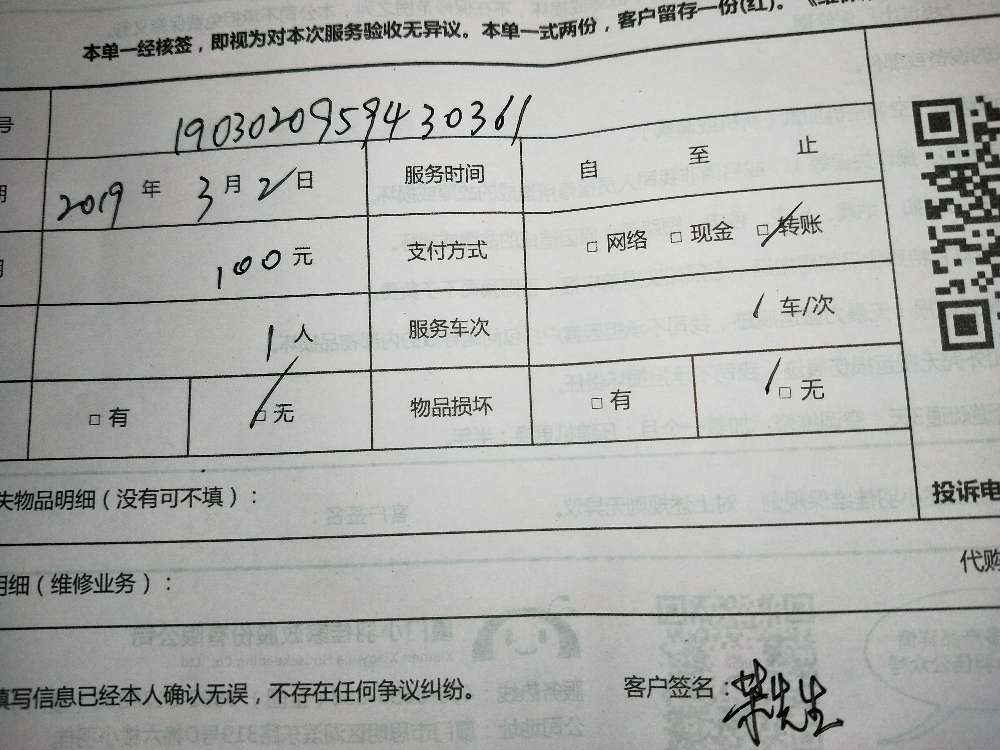 本单一经核签，即视为对本次服务验收无异议。本单一式两份，客户留存一份(红)。
号 1903020959430361
期 2019 年 3 月 2 日 服务时间 自 至 止
100 元 支付方式 □ 网络 □ 现金 □ 转账
1 人 服务车次 1 车/次
□ 有 □ 无 物品损坏 □ 有 □ 无
失物品明细（没有可不填）：
投诉电
明细（维修业务）：
代购
填写信息已经本人确认无误，不存在任何争议纠纷。 客户签名：荣先生